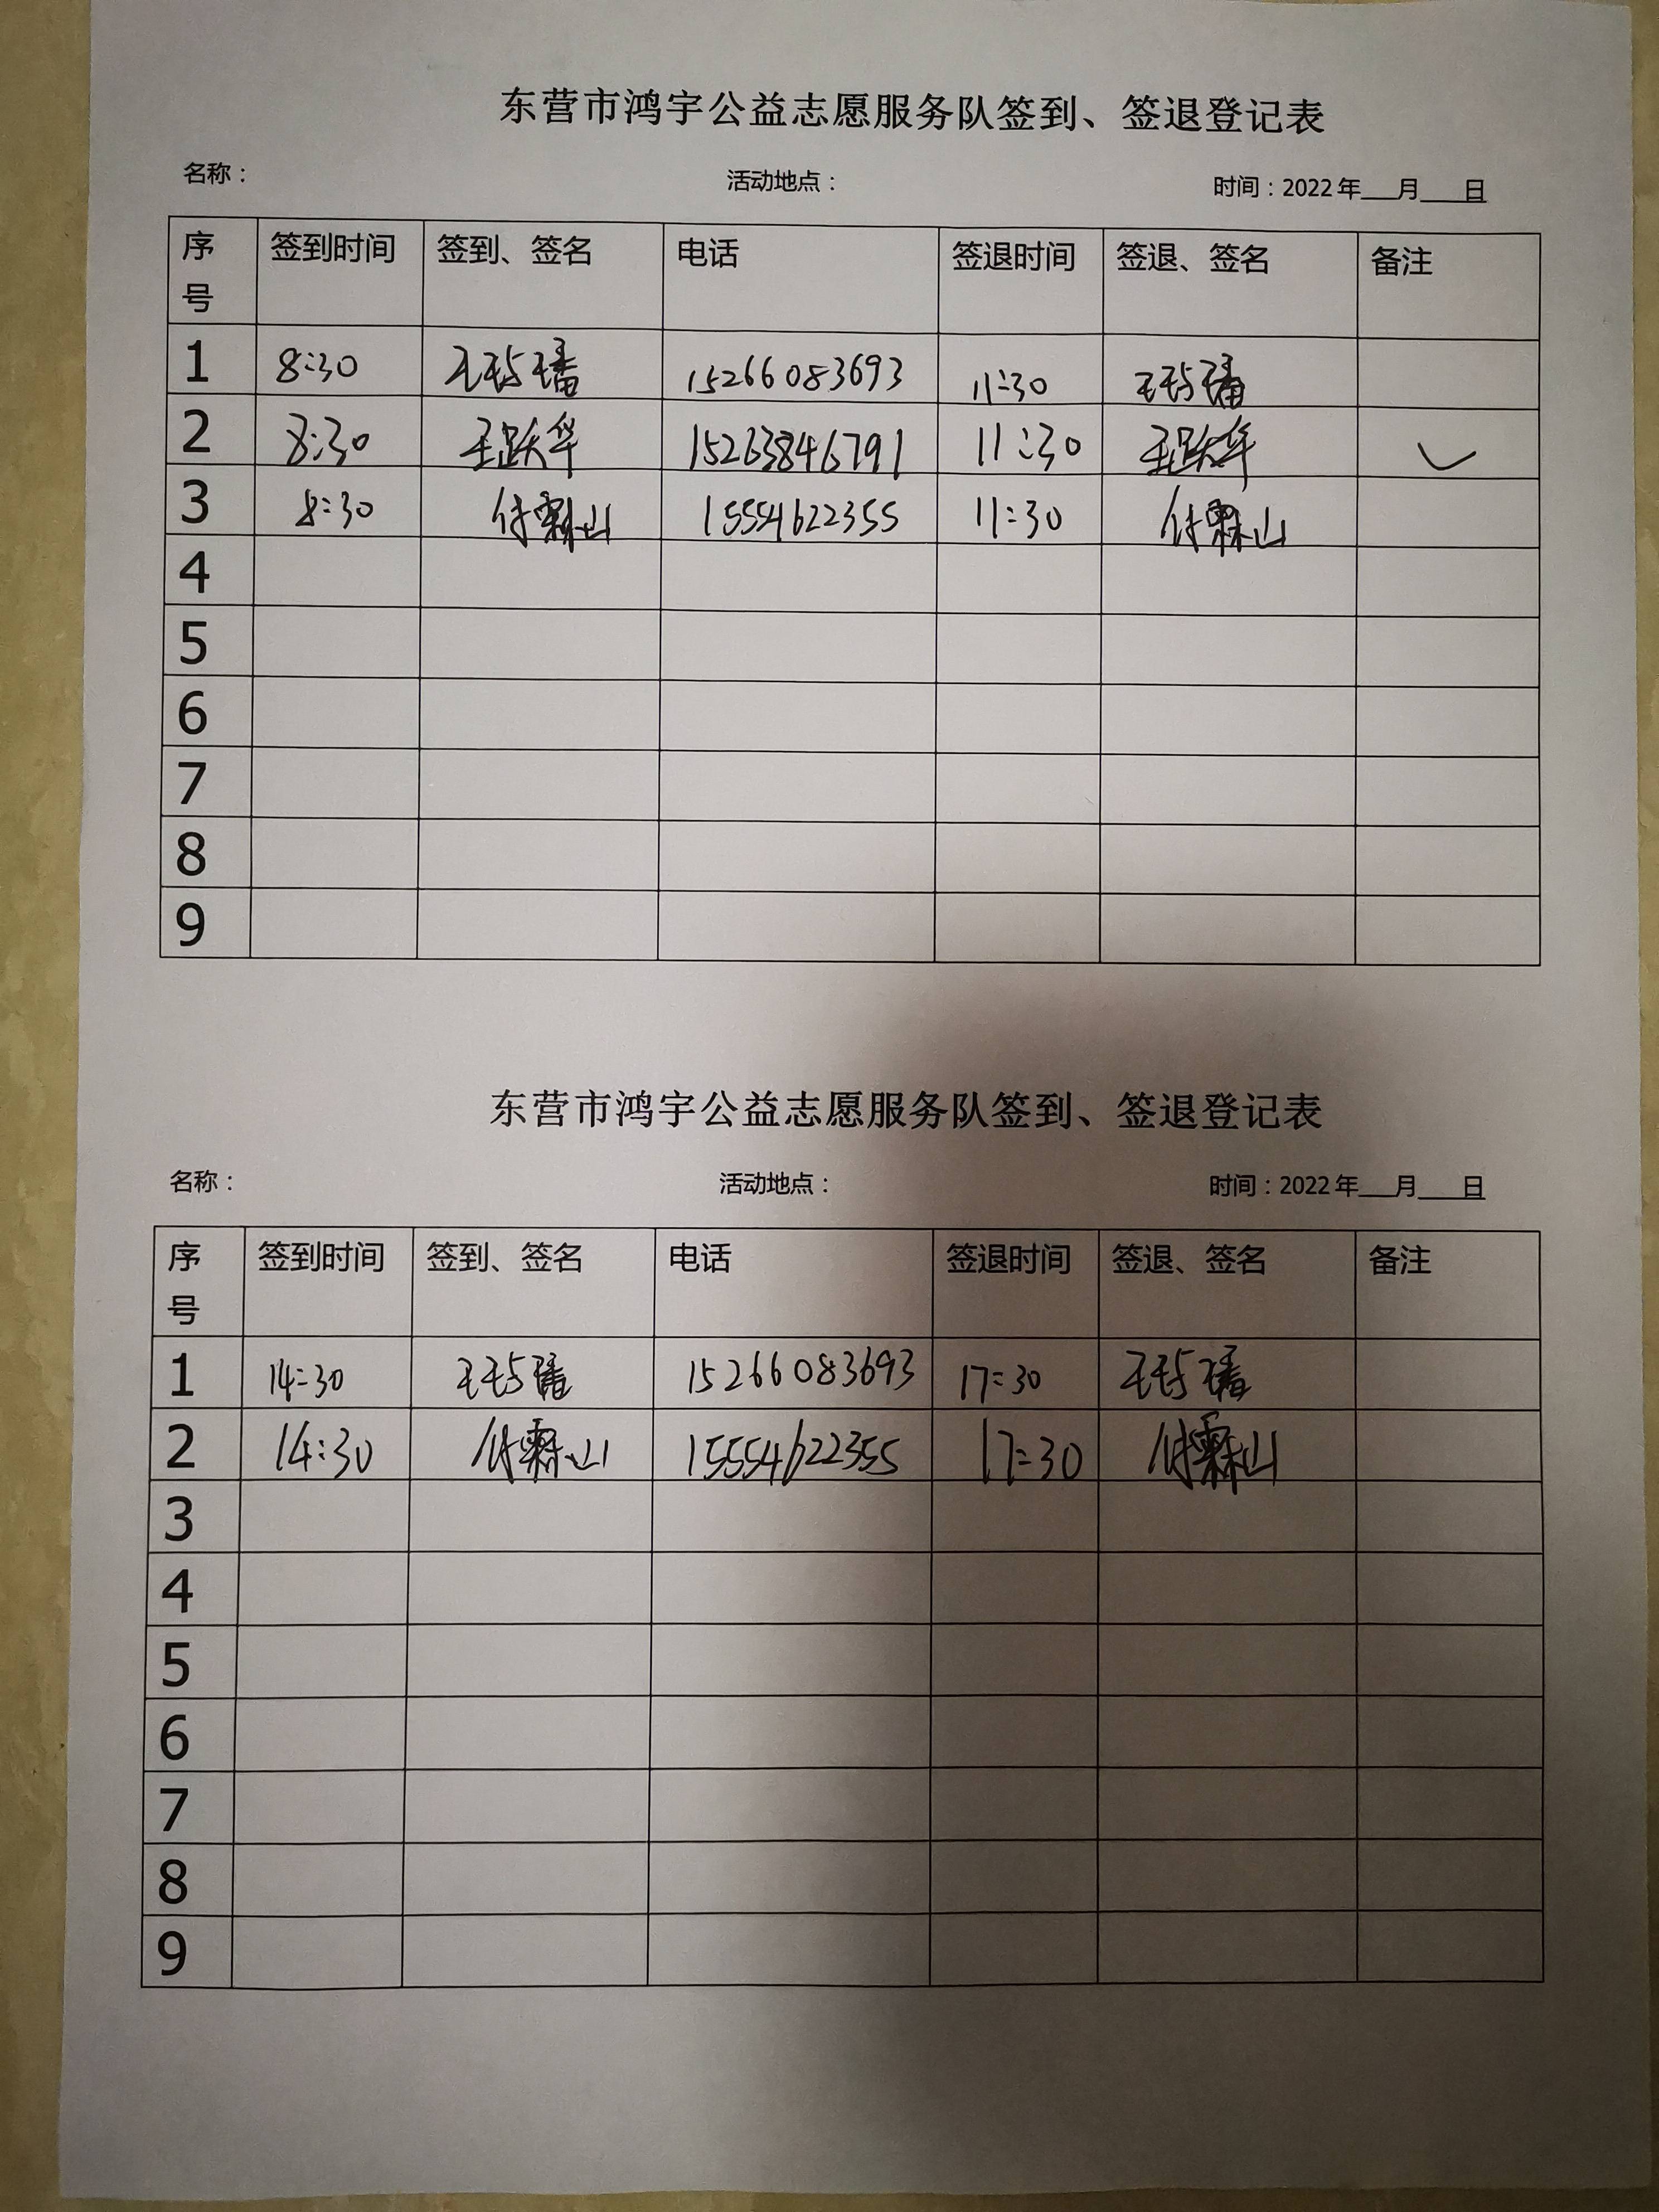 东营市鸿宇公益志愿服务队签到、签退登记表
名称： 活动地点： 时间：2022年___月___日
序号 签到时间 签到、签名 电话 签退时间 签退、签名 备注
1 8:30 15266083693 11:30
2 8:30 王跃华 15263846791 11:30 王跃华 ✓
3 8:30 付霖山 15554622355 11:30 付霖山
4
5
6
7
8
9
东营市鸿宇公益志愿服务队签到、签退登记表
名称： 活动地点： 时间：2022年___月___日
序号 签到时间 签到、签名 电话 签退时间 签退、签名 备注
1 14:30 15266083693 17:30
2 14:30 付霖山 15554622355 17:30 付霖山
3
4
5
6
7
8
9